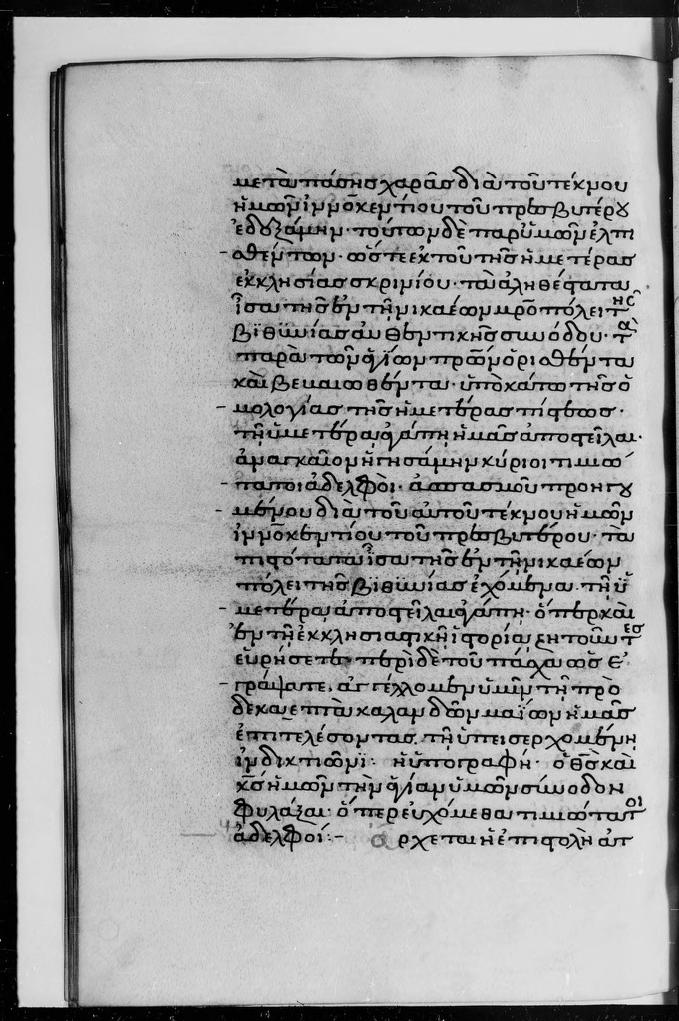 μετὰ πάσης χαρᾶς διὰ τοῦ τέκνου
ἡμῶν ἰννοκεντίου τοῦ πρεσβυτέρου
ἐδεξάμην· τούτων δὲ παρ' ὑμῶν ἐλπι
σθέντων· ὥστε ἐκ τοῦ τῆς ἡμετέρας
ἐκκλησίας σκρινίου· τὰ ἀληθέστατα
ἴσα τῆς ἐν τῇ νικαέων μητροπόλει τῆς
βιθϋνίας αὐθεντικῆς συνόδου· τὰ
παρὰ τῶν ἁγίων πρῶν ὁρισθέντα
καὶ βεβαιωθέντα· ὑποκάτω τῆς ὁ
μολογίας τῆς ἡμετέρας πίστεως·
τῇ ὑμετέρᾳ ἀγάπῃ ἡμᾶς ἀποστεῖλαι·
ἀναγκαῖον ἡγησάμην κύριοι τιμιώ
τατοι ἀδελφοί· ἀσπασμοῦ προηγου
μένου διὰ τοῦ αὐτοῦ τέκνου ἡμῶν
ἰννοκεντίου τοῦ πρεσβυτέρου· τὰ
πιστότατα ἴσα τῆς ἐν τῇ νικαέων
πόλει τῆς βιθϋνίας ἐχόμενα· τῇ ὑ
μετέρᾳ ἀποστεῖλαι ἀγάπῃ· ὅπερ καὶ
ἐν τῇ ἐκκλησιαστικῇ ἱστορίᾳ ζητοῦντες
εὑρήσετε· περὶ δὲ τοῦ πάσχα ὡς ἐ
γράψατε, ἀγγέλλομεν ὑμῖν τῇ πρὸ
δεκαεπτὰ καλανδῶν μαΐων ἡμᾶς
ἐπιτελέσοντας τῇ ὑπεισερχομένῃ
ἰνδικτιῶνι: ἡ ὑπογραφή· ὁ θς καὶ
κς ἡμῶν τὴν ἁγίαν ὑμῶν σύνοδον
φυλάξαι· ὅπερ εὐχόμεθα τιμιώτατοι
ἀδελφοί:– ἄρχεται ἡ ἐπιστολὴ ἀπ